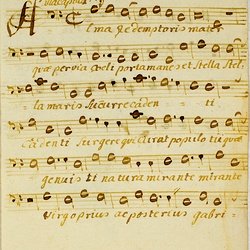 Alma Redemptoris mater
quæ pervia cœli porta manes et Stella
tila maris Sucurre caden ti
cadenti surgere qui curat populo tu quæ
genuisti natura mirante mirante
Virgo prius ac posterius gabri